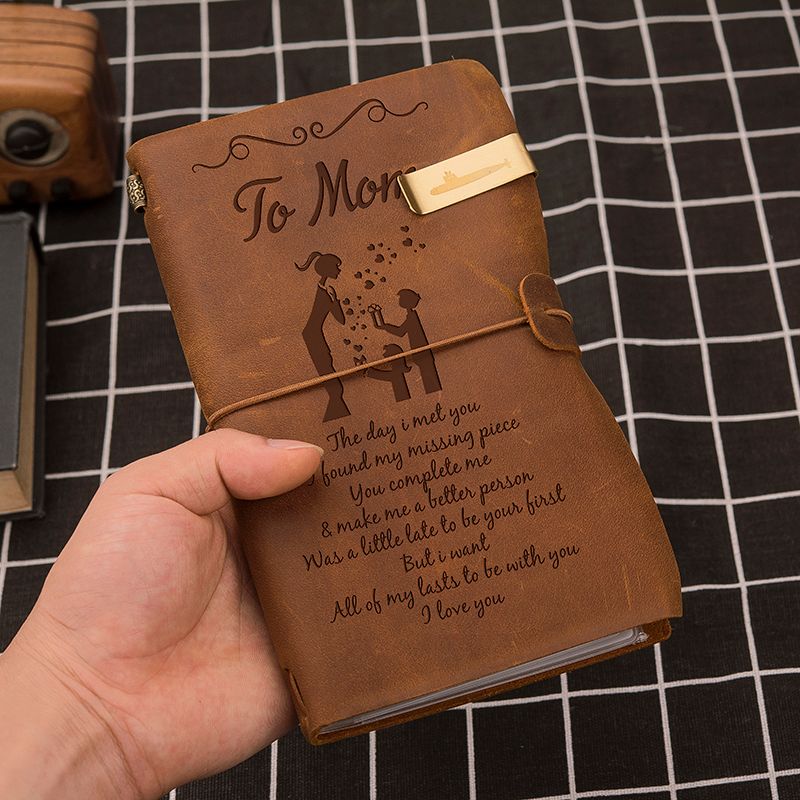 To Mom
The day i met you
I found my missing piece
You complete me
& make me a better person
Was a little late to be your first
But i want
All of my lasts to be with you
I love you